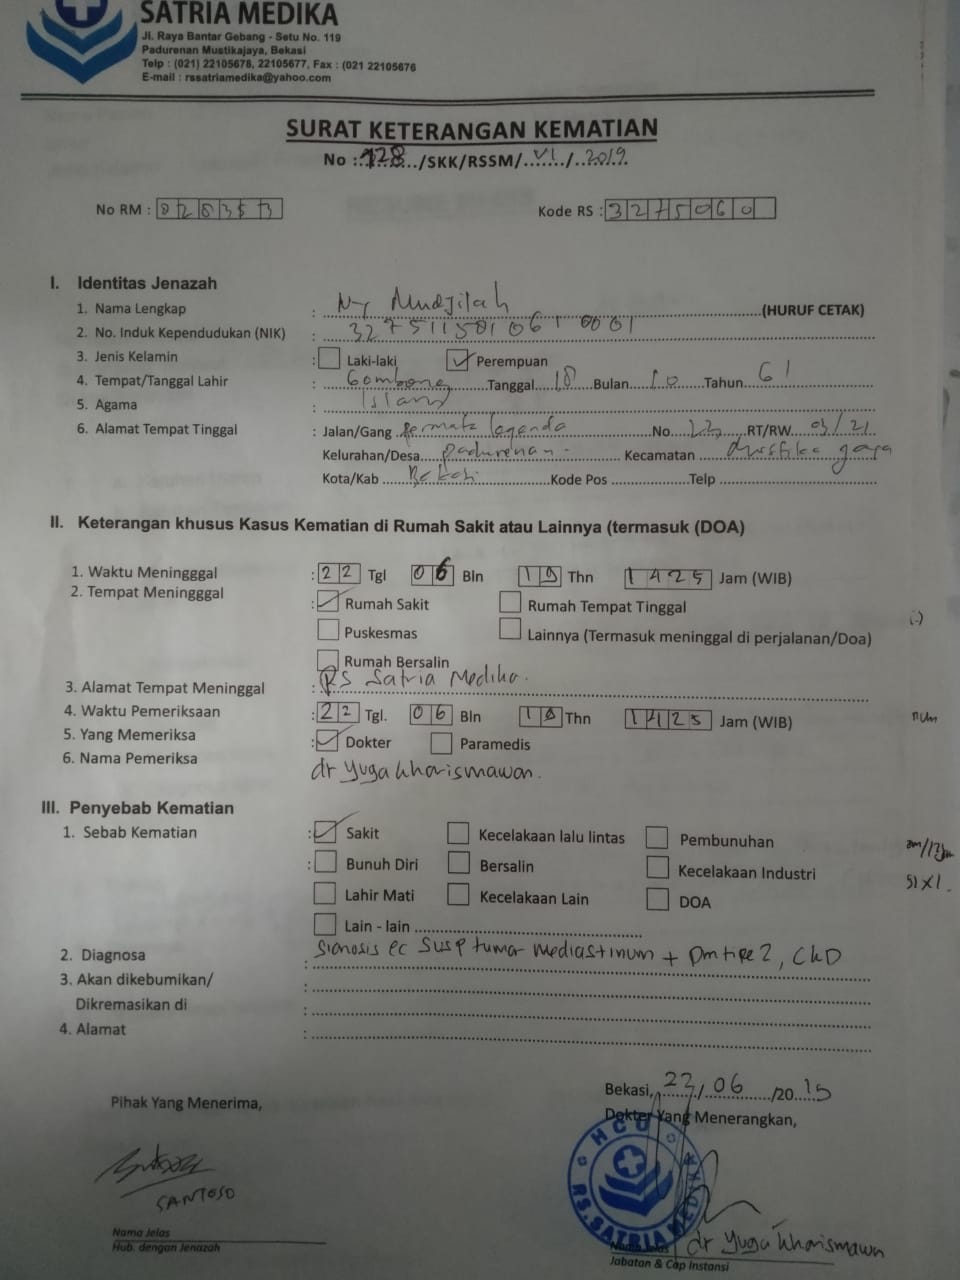 SATRIA MEDIKA
Jl. Raya Bantar Gebang - Setu No. 119
Padurenan Mustikajaya, Bekasi
Telp : (021) 22105678, 22105677, Fax : (021 22105676
E-mail : rssatriamedika@yahoo.com
SURAT KETERANGAN KEMATIAN
No : 128 /SKK/RSSM/ VI / 2019
No RM :
Kode RS : 3275060
I. Identitas Jenazah
1. Nama Lengkap : Ny Mudjilah (HURUF CETAK)
2. No. Induk Kependudukan (NIK) :
3. Jenis Kelamin : Laki-laki Perempuan
4. Tempat/Tanggal Lahir : Gombong Tanggal 18 Bulan 10 Tahun 61
5. Agama : Islam
6. Alamat Tempat Tinggal : Jalan/Gang Permata legenda No. RT/RW 03/21
Kelurahan/Desa padurenan Kecamatan Mustika jaya
Kota/Kab Bekasi Kode Pos Telp
II. Keterangan khusus Kasus Kematian di Rumah Sakit atau Lainnya (termasuk (DOA)
1. Waktu Meningggal : 22 Tgl 06 Bln 19 Thn 1425 Jam (WIB)
2. Tempat Meningggal : Rumah Sakit Rumah Tempat Tinggal
Puskesmas Lainnya (Termasuk meninggal di perjalanan/Doa)
Rumah Bersalin
3. Alamat Tempat Meninggal : RS Satria Medika.
4. Waktu Pemeriksaan : 22 Tgl. 06 Bln 19 Thn 1425 Jam (WIB)
5. Yang Memeriksa : Dokter Paramedis
6. Nama Pemeriksa dr Yuga Kharismawan.
III. Penyebab Kematian
1. Sebab Kematian : Sakit Kecelakaan lalu lintas Pembunuhan
: Bunuh Diri Bersalin Kecelakaan Industri
Lahir Mati Kecelakaan Lain DOA
Lain - lain
2. Diagnosa : Sianosis ec Susp tumor mediastinum + Dm tipe 2, CKD
3. Akan dikebumikan/ :
Dikremasikan di :
4. Alamat :
Bekasi, 22/ 06 /20 19
Pihak Yang Menerima,
Dokter Yang Menerangkan,
HCU
RS. SATRIA MEDIKA
SANTOSO
Nama Jelas
Hub. dengan Jenazah
Nama Jelas dr Yuga Kharismawan
Jabatan & Cap Instansi